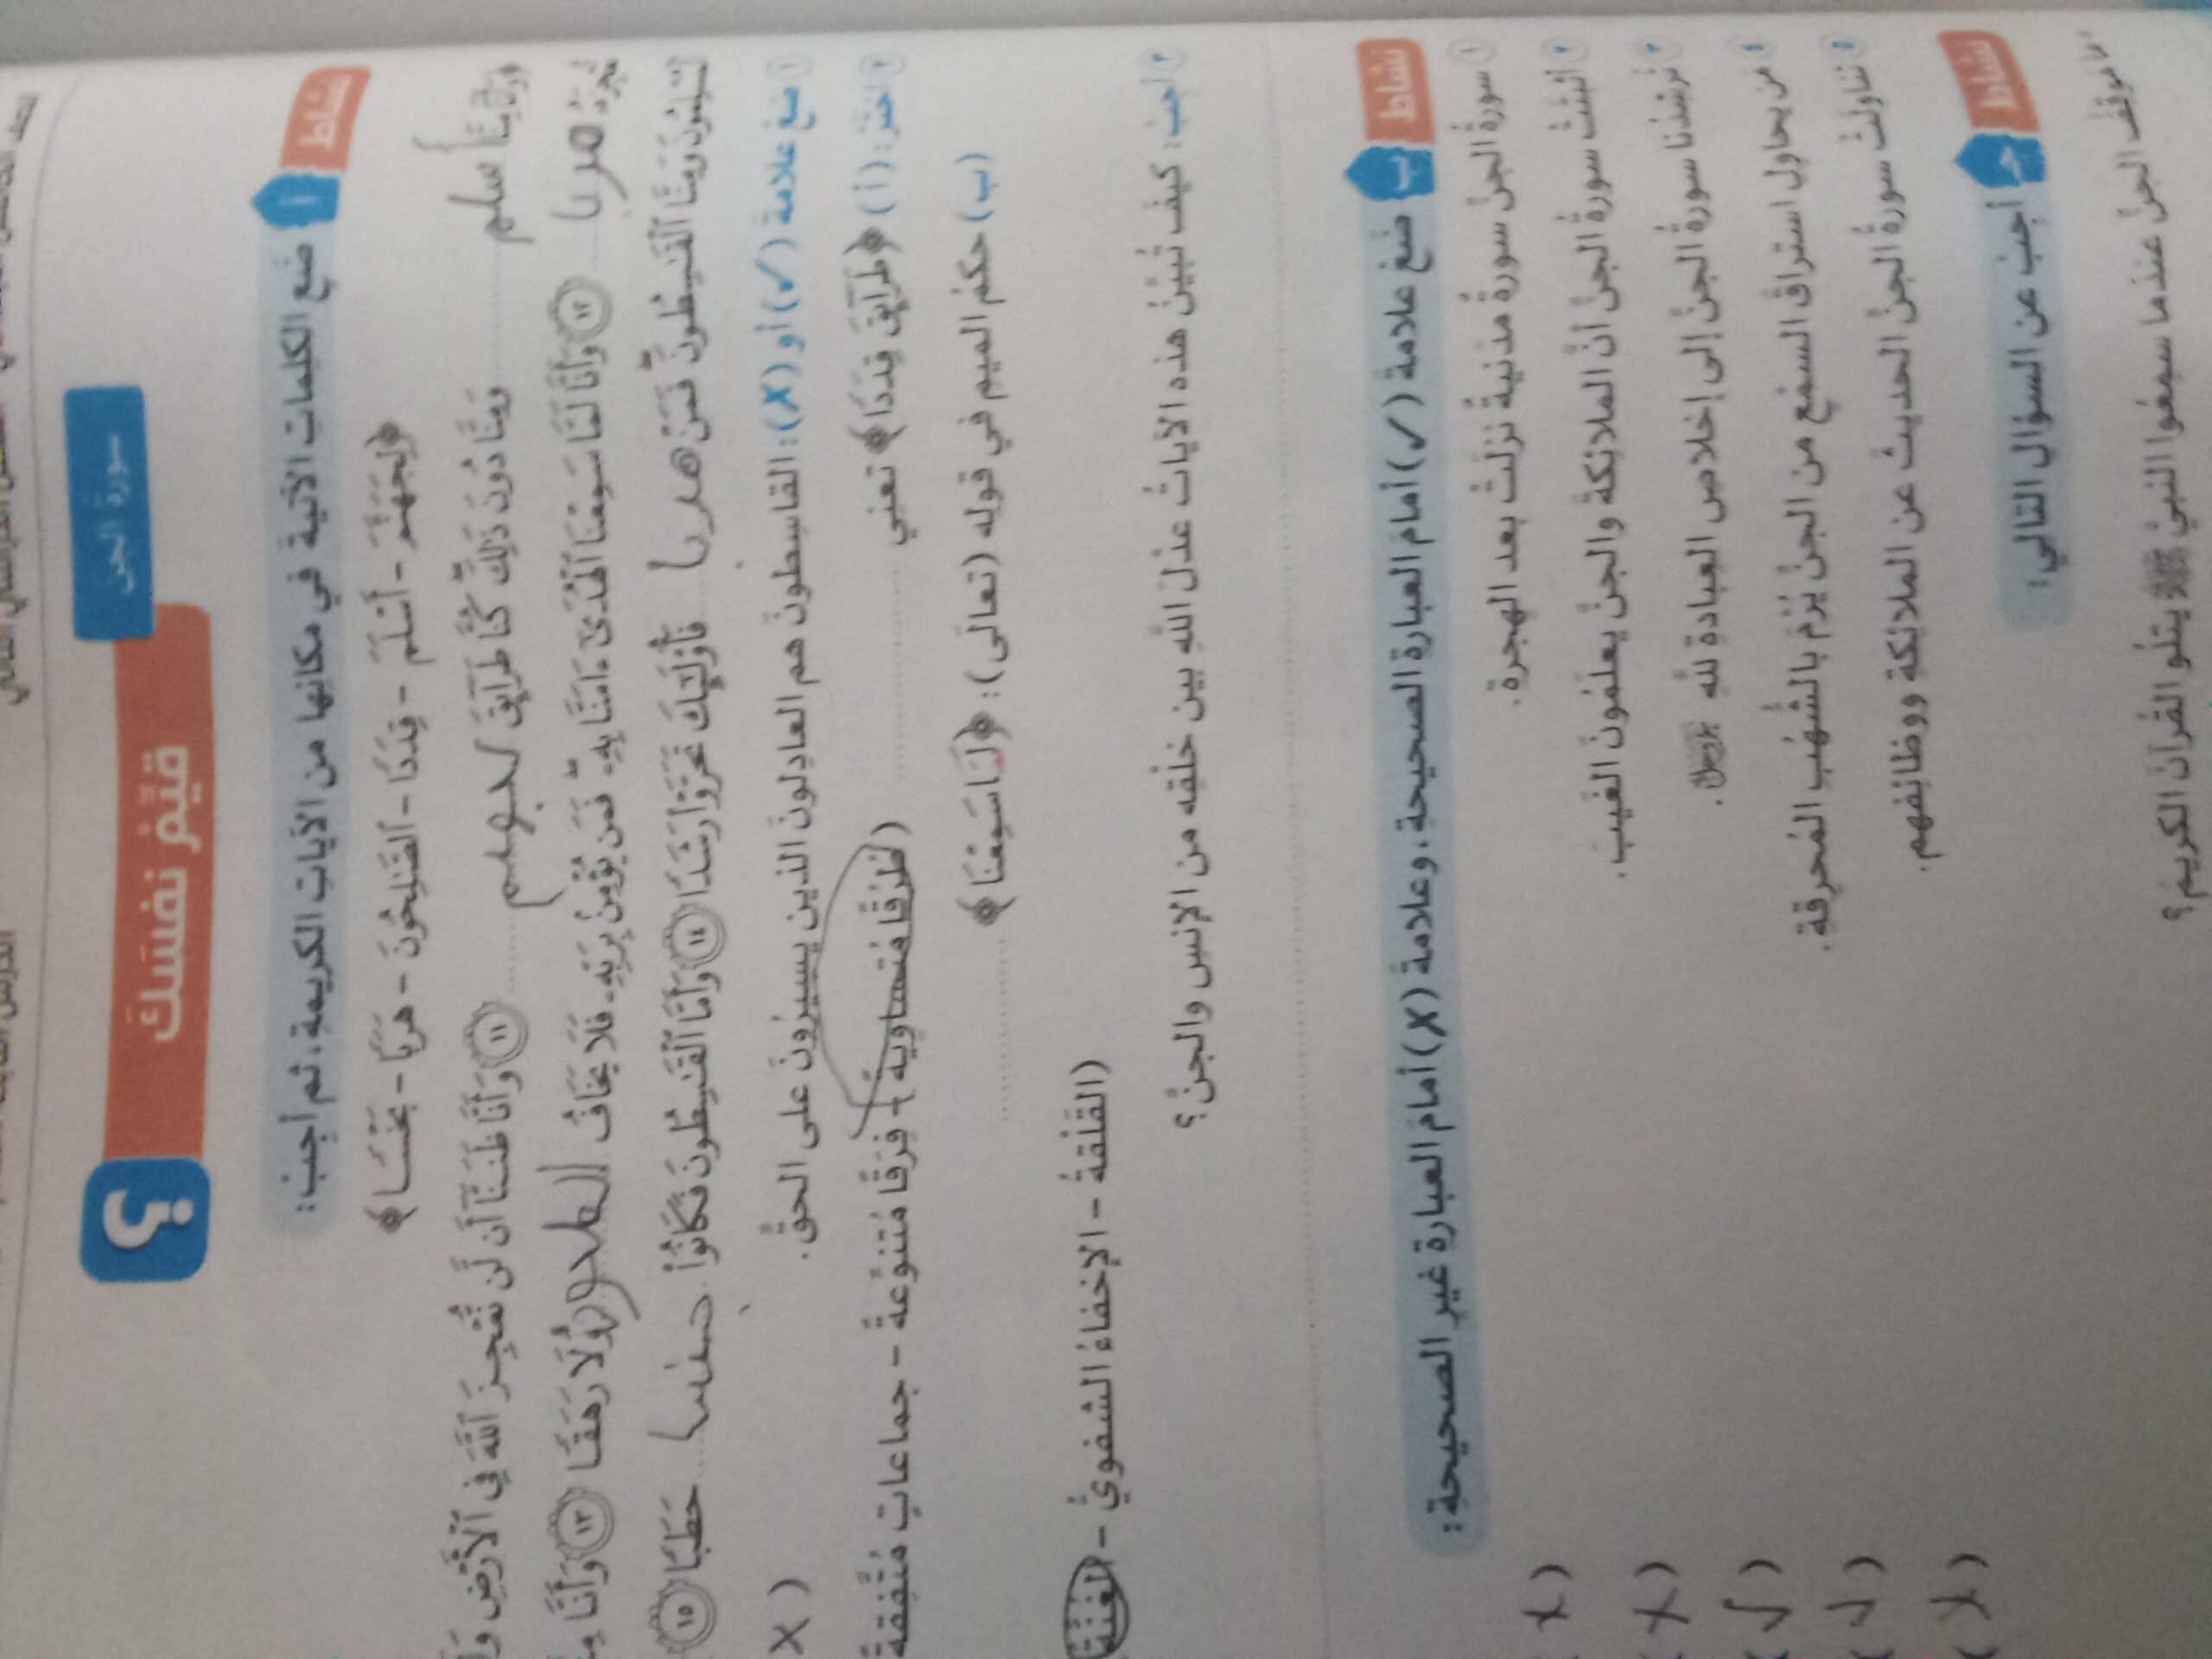 سورة الجن
قيّم نفسك
؟
نشاط أ ضع الكلمات الآتية في مكانها من الآيات الكريمة، ثم أجب:
﴿لِجَهَنَّمَ - أَسْلَمَ - قِدَدًا - ٱلصَّٰلِحُونَ - هَرَبًا - بَخْسًا﴾
﴿وَأَنَّا مِنَّا أسلم وَمِنَّا دُونَ ذَٰلِكَ كُنَّا طَرَآئِقَ لجهنم ١١ وَأَنَّا ظَنَنَّآ أَن لَّن نُّعْجِزَ ٱللَّهَ فِى ٱلْأَرْضِ
نُّعْجِزَهُۥ هربا ١٢ وَأَنَّا لَمَّا سَمِعْنَا ٱلْهُدَىٰٓ ءَامَنَّا بِهِۦ فَمَن يُؤْمِنۢ بِرَبِّهِۦ فَلَا يَخَافُ وَلَا رَهَقًا ١٣ وَأَنَّا
ٱلْمُسْلِمُونَ وَمِنَّا ٱلْقَٰسِطُونَ فَمَنْ فَأُو۟لَٰٓئِكَ تَحَرَّوْا۟ رَشَدًا ١٤ وَأَمَّا ٱلْقَٰسِطُونَ فَكَانُوا۟ حَطَبًا ١٥
١ ضع علامة (✓) أو (✗): القاسطون هم العادلون الذين يسيرون على الحق. ( X
٢ اختر: (أ) ﴿طَرَآئِقَ قِدَدًا﴾ تعني ........ (طرقًا متساوية - فرقًا متنوعة - جماعات متفقة
(ب) حكم الميم في قوله (تعالى): ﴿لَمَّا سَمِعْنَا﴾ ........
(القلقة - الإخفاء الشفوي - الغنة
٣ أجب: كيف تبين هذه الآيات عدل الله بين خلقه من الإنس والجن؟
نشاط ب ضع علامة (✓) أمام العبارة الصحيحة، وعلامة (✗) أمام العبارة غير الصحيحة:
١ سورة الجن سورة مدنية نزلت بعد الهجرة. ( X )
٢ أثبتت سورة الجن أن الملائكة والجن يعلمون الغيب. ( X )
٣ ترشدنا سورة الجن إلى إخلاص العبادة لله عز وجل. ( ✓ )
٤ من يحاول استراق السمع من الجن يرم بالشهب المحرقة. ( ✓ )
٥ تناولت سورة الجن الحديث عن الملائكة ووظائفهم. ( X )
نشاط ج أجب عن السؤال التالي:
ما موقف الجن عندما سمعوا النبي ﷺ يتلو القرآن الكريم؟